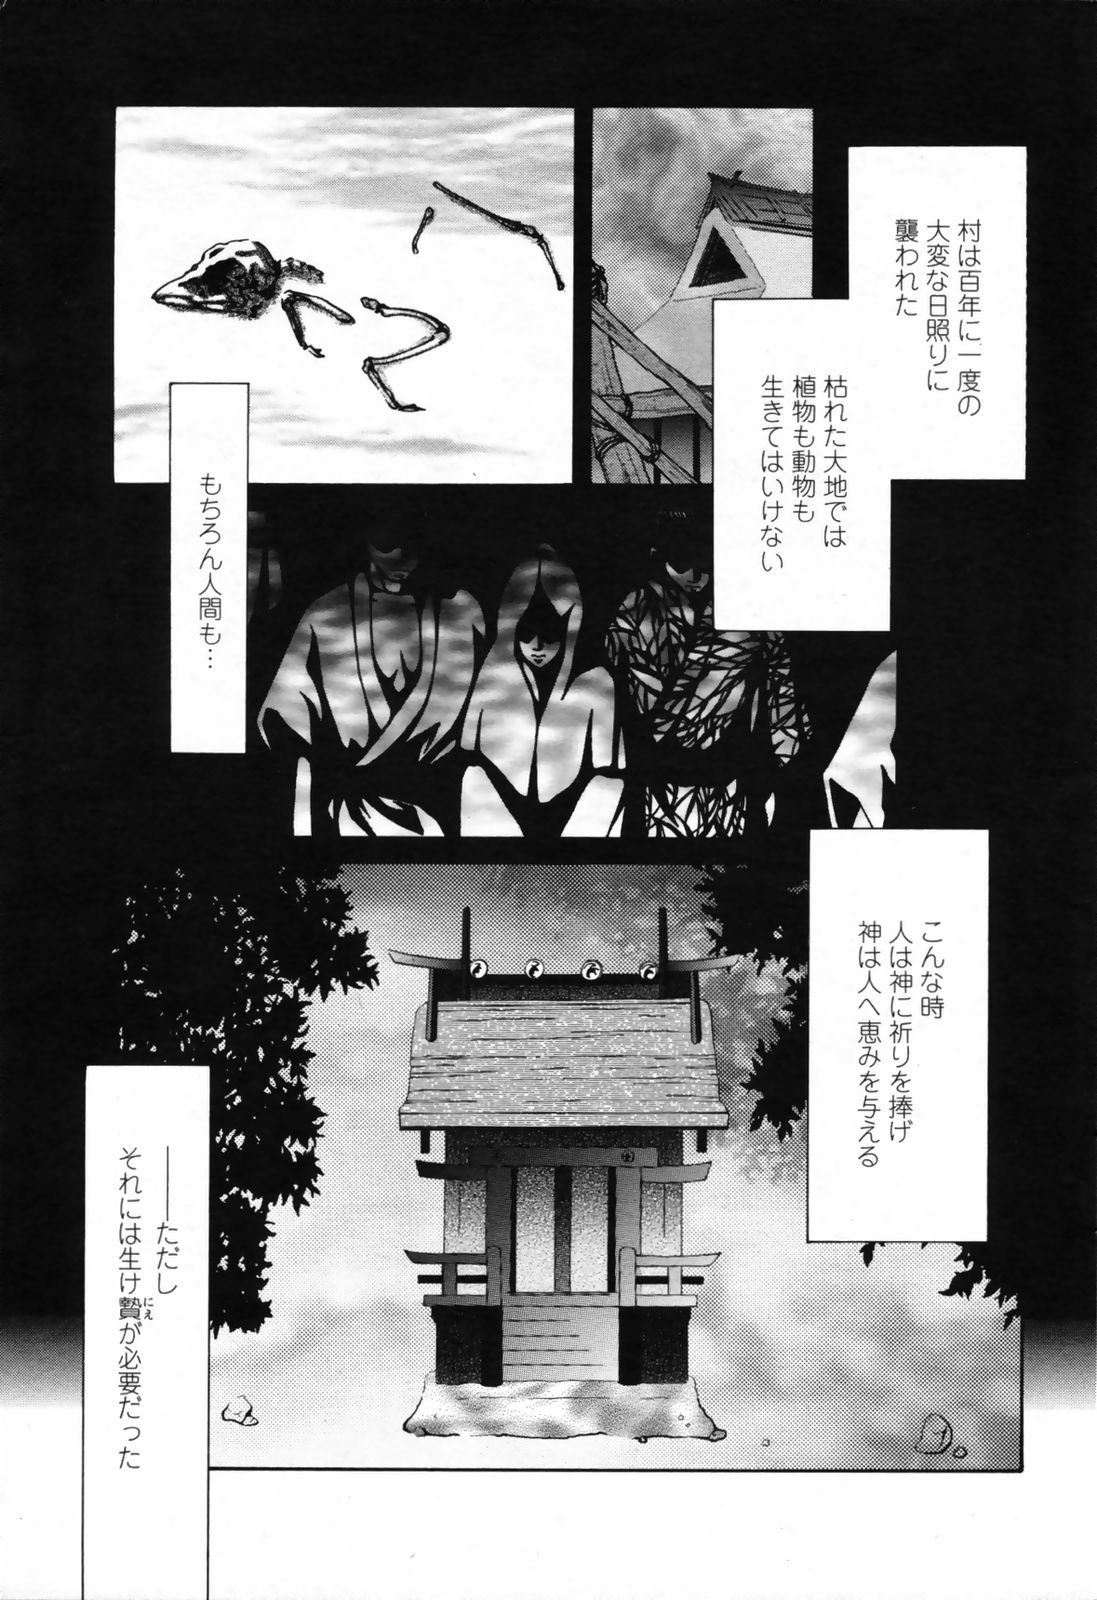 村は百年に一度の
大変な日照りに
襲われた
枯れた大地では
植物も動物も
生きてはいけない
もちろん人間も…
こんな時
人は神に祈りを捧げ
神は人へ恵みを与える
――ただし
それには生け贄が必要だった
にえ